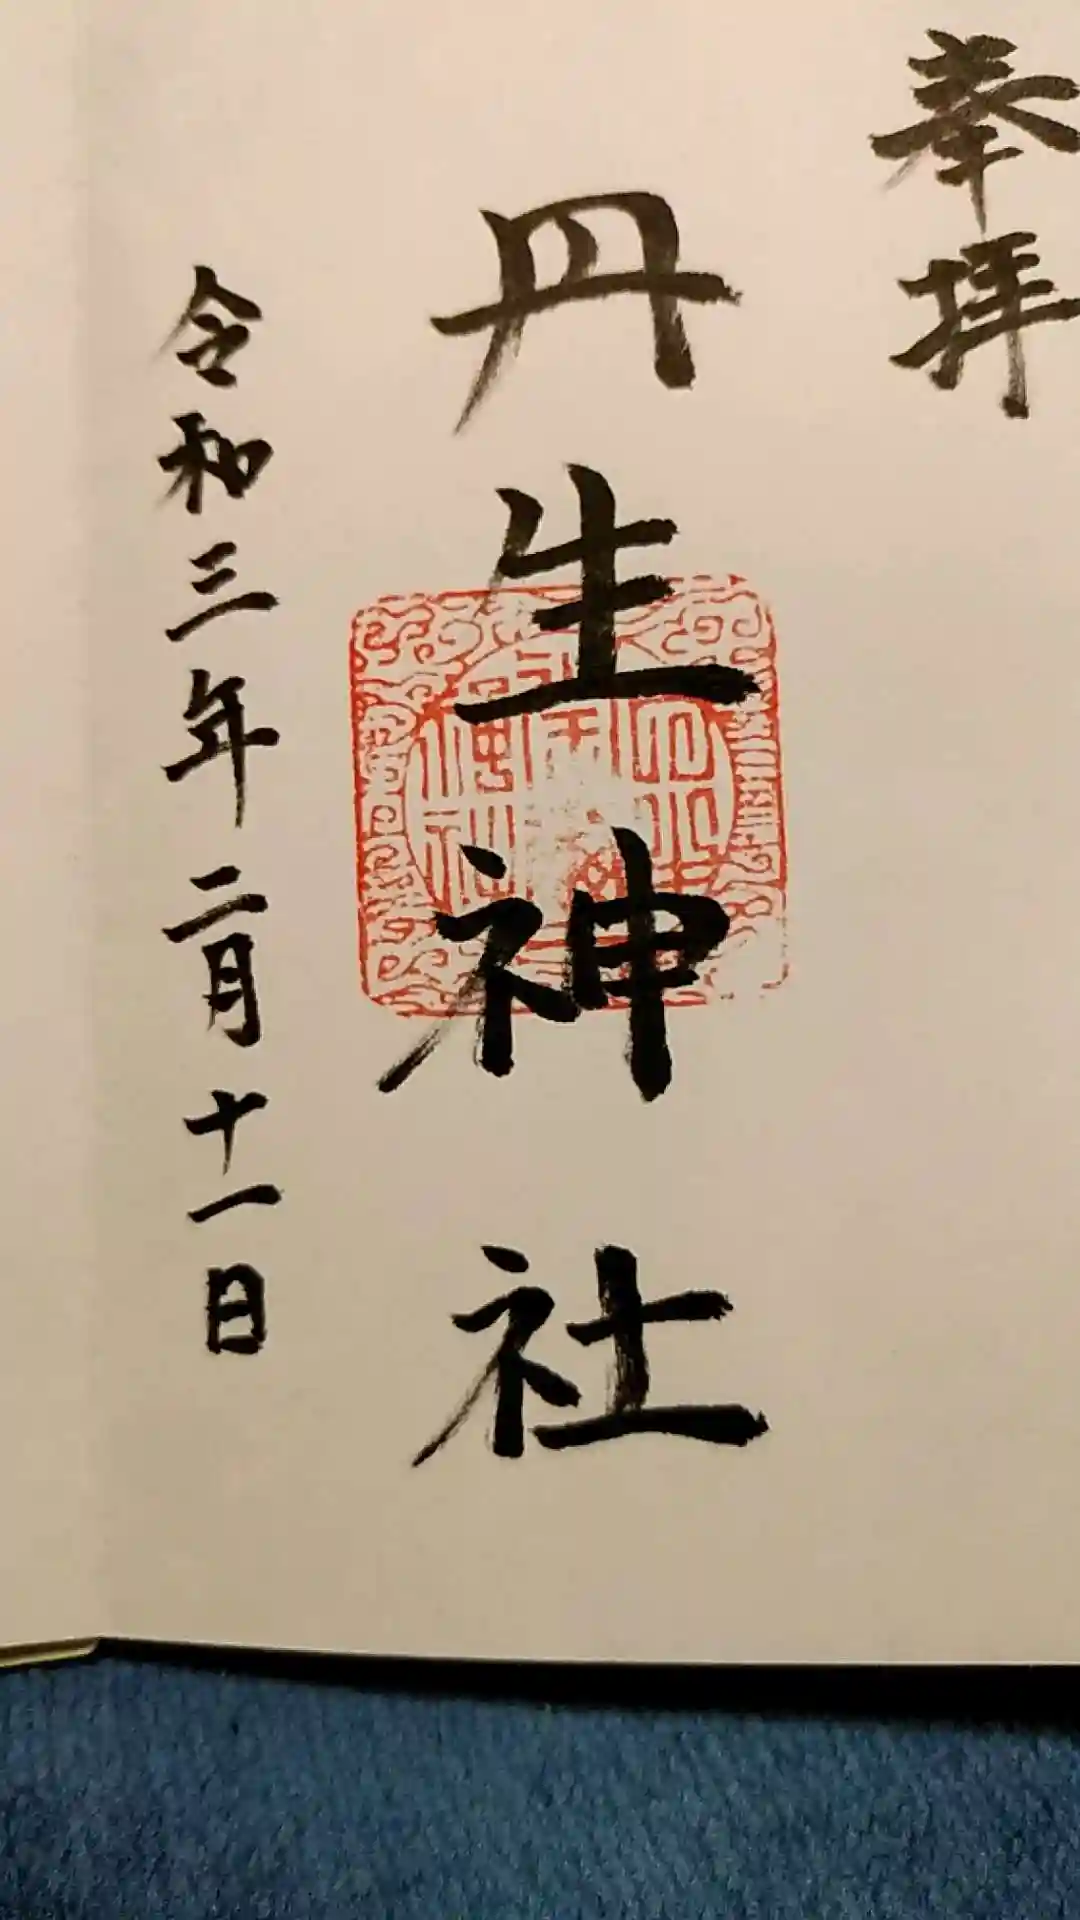 奉拝
丹生神社
令和三年二月十一日